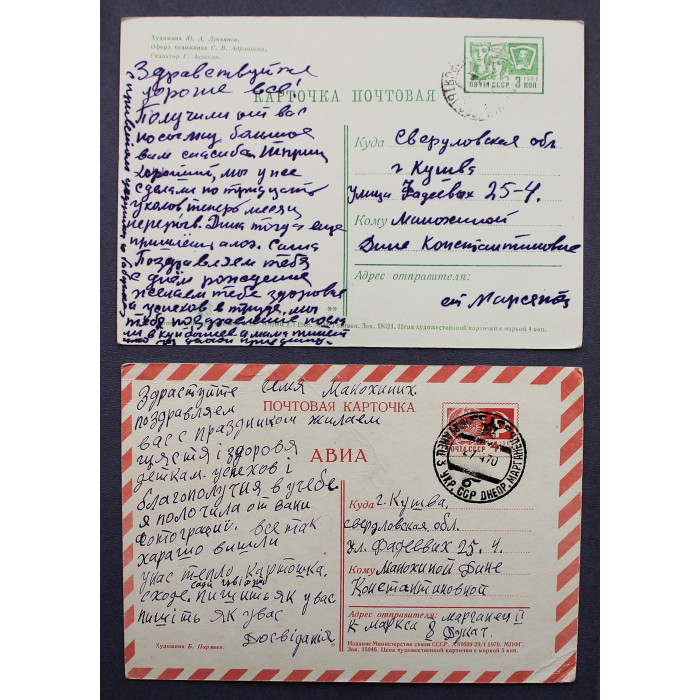 Художник Ю. А. Лукьянов.
Офорт художника С. В.
Редактор Г.
Здравствуйте
дорогие все!
КАРТОЧКА ПОЧТОВАЯ
ПОЧТА СССР 3 КОП.
Получили от вас
посылку большое
вам спасибо. Шприц
хороший, мы уже
сделали по тридцать
уколов теперь месяц
перерыв. Дина тогда еще
пришлёш алоэ. Саша
Поздравляем тебя
с днём рождение
желаем тебе здоровья
и успехов в труде, мы
тебя поздравление
в Куйбышев а мама пишет
Куда Свердловская обл
г Кушва
улица Фадеевых 25-4.
Кому Манохиной
Дине Константиновне
Адрес отправителя:
Цена художественной карточки с маркой 4 коп.
Здраствуйте семя Манохиних.
поздравляем
вас с праздником жилаем
щястя і здоровя
деткам. успехов і
благополучия в учебе
я полочила от вани
фотографиї. все так
харашо вишли
у нас тепло. картошка.
сходе. пишить як у вас
сади цвіли
пишіть як у вас
Досвіданія
ПОЧТОВАЯ КАРТОЧКА
АВИА
ПОЧТА СССР
МАРГАНЕЦ 3 УКР. ССР ДНЕПР.
Куда г. Кушва.
свердловская обл.
ул. Фадеевих 25. 4.
Кому Манохиной Дине
Константиновной
Адрес отправителя: марганец II
К-Маркса 8
Художник Б. Пармеев.
Издание Министерства связи СССР. 20/I 1970. МПФГ.
Зак. 15046. Цена художественной карточки с маркой 5 коп.